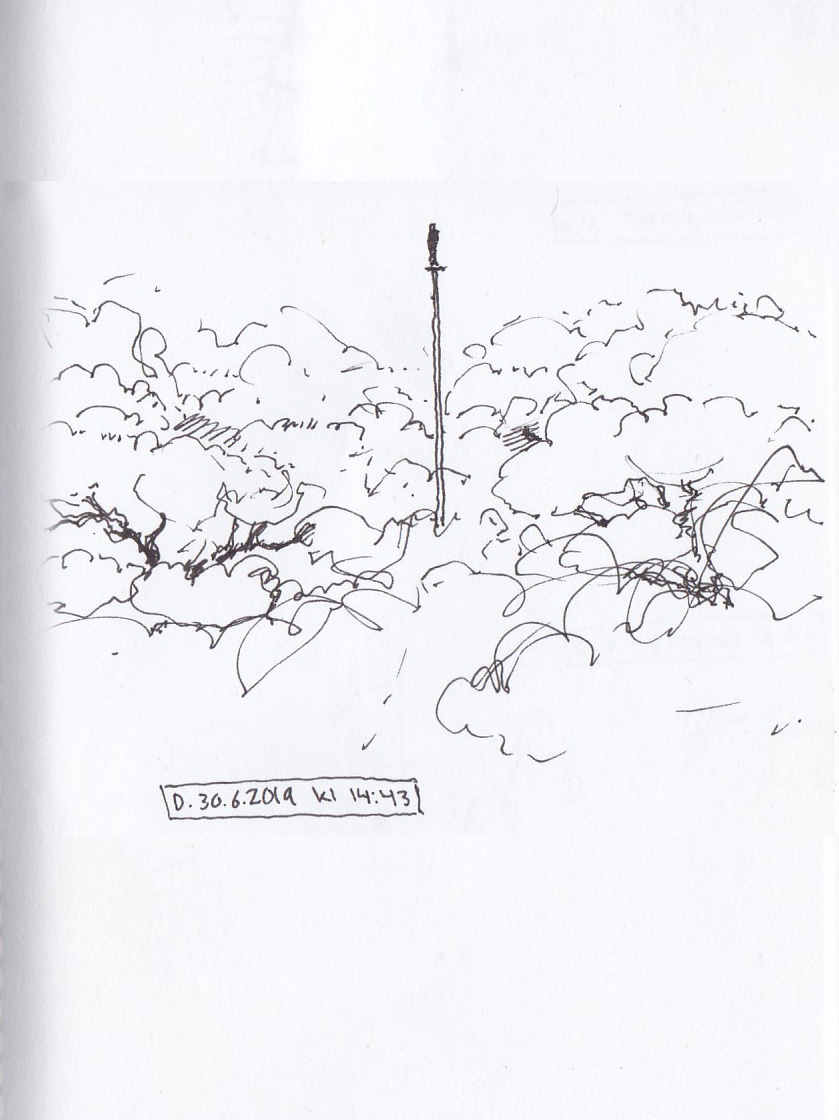 D. 30.6.2019 kl 14:43